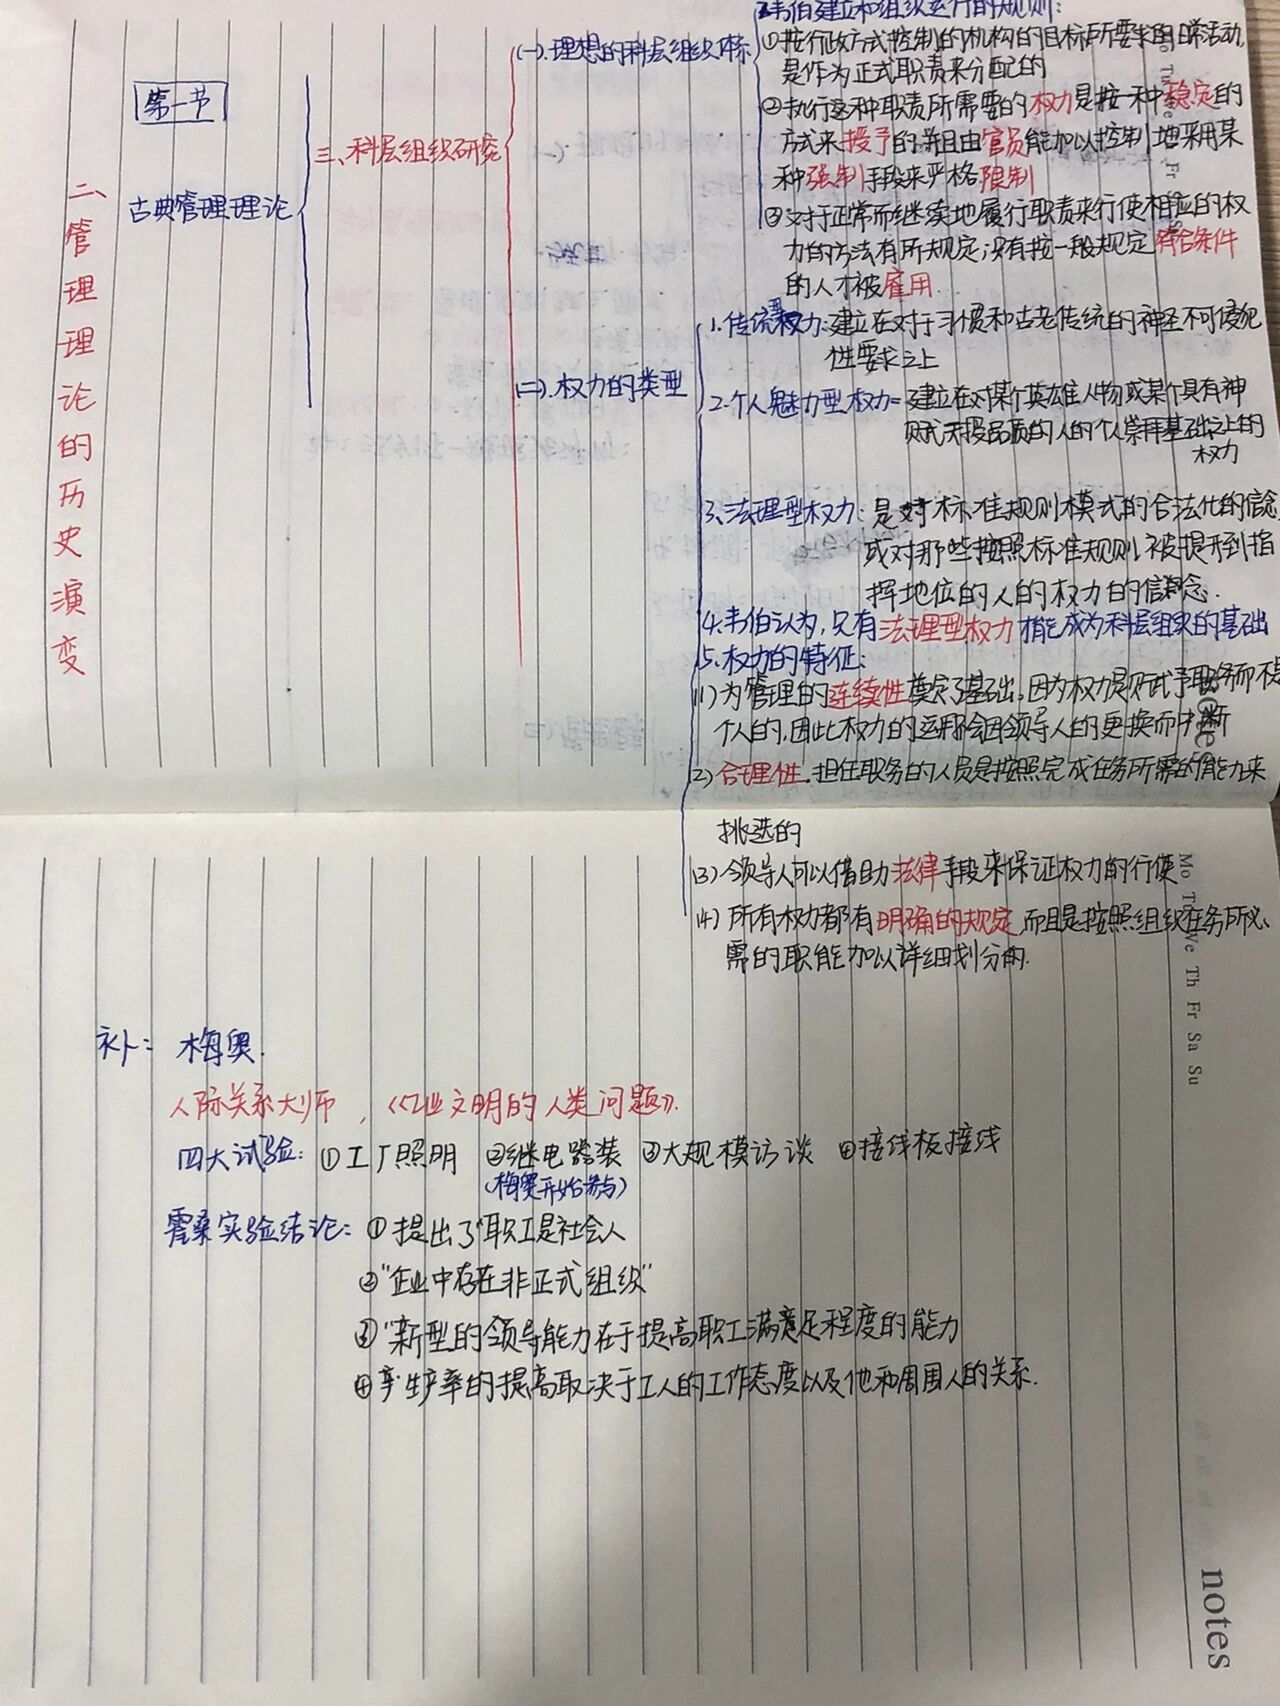 二、管理理论的历史演变
第一节
古典管理理论
三、科层组织研究
(一).理想的科层组织体系
2.韦伯建立和组织运行的规则:
①按行政方式控制的机构的目标所要求的日常活动,
是作为正式职责来分配的
②执行这种职责所需要的权力是按一种稳定的
方式来授予的,并且由官员能加以控制地采用某
种强制手段来严格限制
③对于正常而继续地履行职责来行使相应的权
力的方法有所规定;没有按一般规定符合条件
的人才被雇用.
(二).权力的类型
1.传统型权力:建立在对于习惯和古老传统的神圣不可侵犯
性要求之上
2.个人魅力型权力=建立在对某个英雄人物或某个具有神
赋天授品质的人的个人崇拜基础之上的
权力
3.法理型权力:是对标准规则模式的合法化的信念
或对那些按照标准规则被提升到指
挥地位的人的权力的信念.
4.韦伯认为,只有法理型权力才能成为科层组织的基础
5.权力的特征:
(1)为管理的连续性奠定了基础。因为权力是赋予职务而不是
个人的,因此权力的运用不会因领导人的更换而中断
(2)合理性.担任职务的人员是按照完成任务所需的能力来
挑选的
(3)领导人可以借助法律手段来保证权力的行使
(4)所有权力都有明确的规定,而且是按照组织任务所必
需的职能加以详细划分的.
补: 梅奥.
人际关系大师,《工业文明的人类问题》.
四大试验:①工厂照明 ②继电器装 ③大规模访谈 ④接线板接线
(梅奥开始参与)
霍桑实验结论:①提出了"职工是社会人
②"企业中存在非正式组织"
③"新型的领导能力在于提高职工满意足程度的能力
④生产率的提高取决于工人的工作态度以及他和周围人的关系.
Mo Tu We Th Fr Sa Su
notes